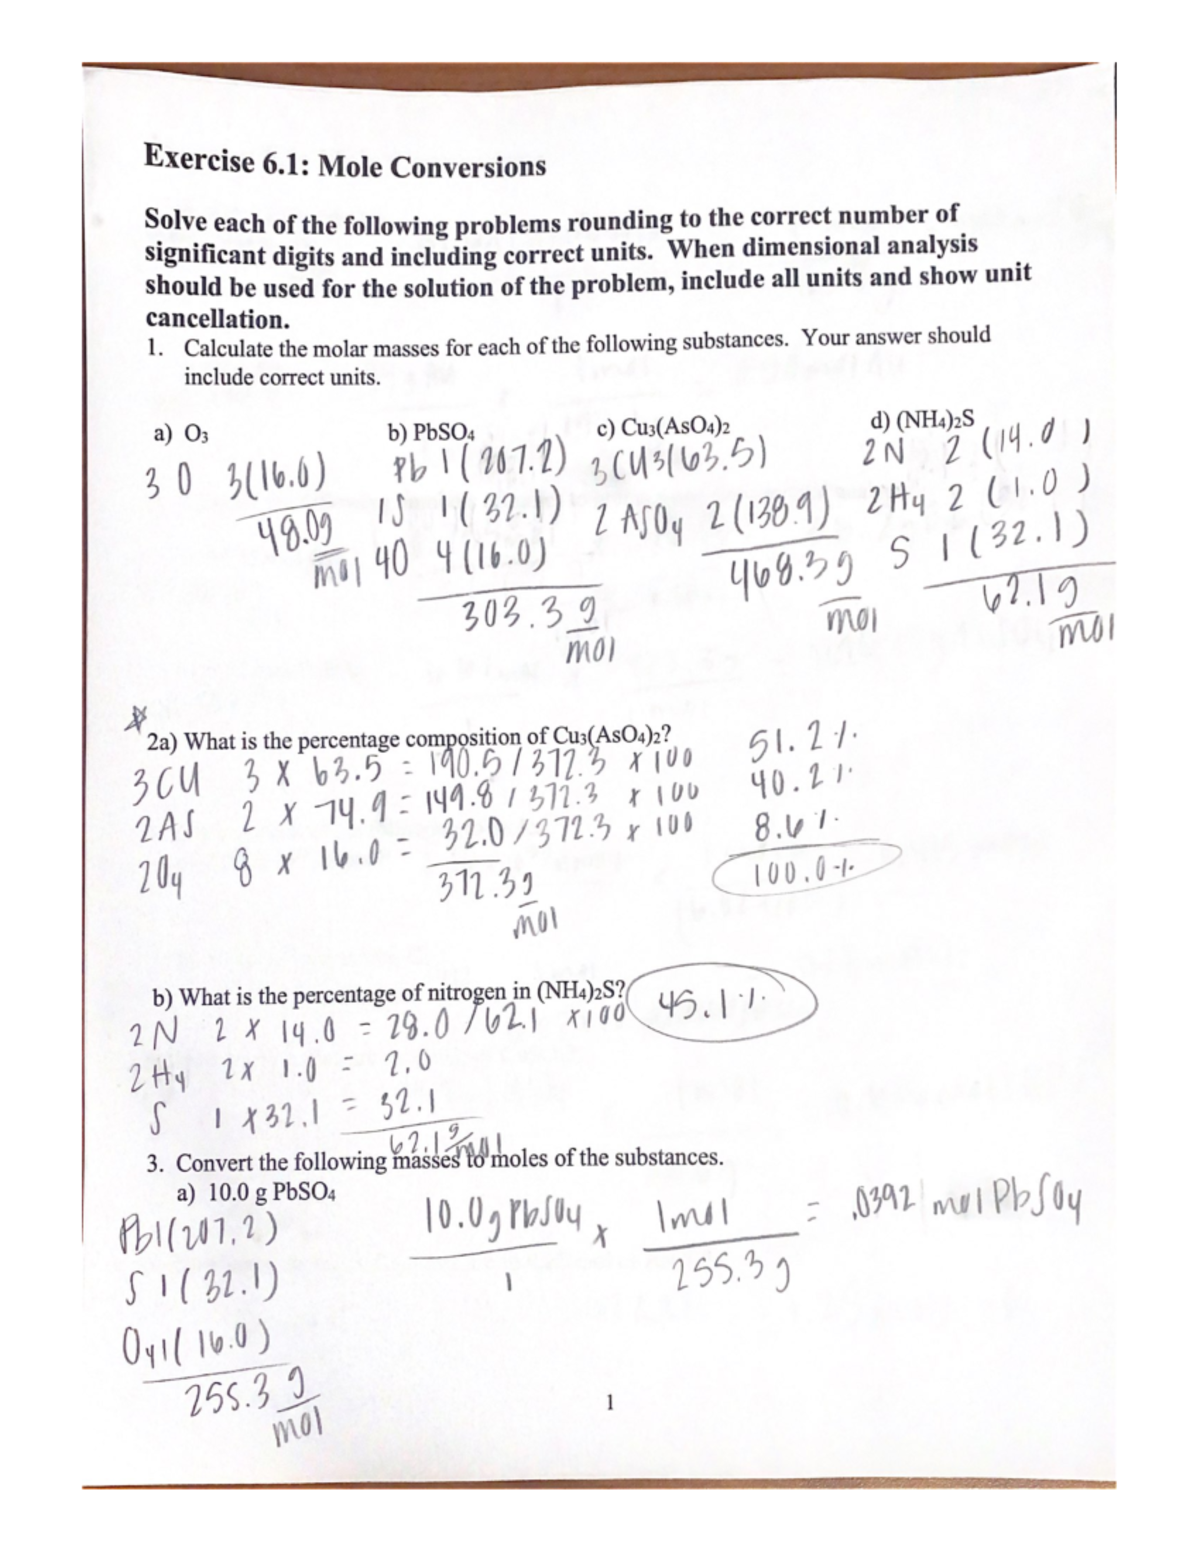 Exercise 6.1: Mole Conversions
Solve each of the following problems rounding to the correct number of
significant digits and including correct units. When dimensional analysis
should be used for the solution of the problem, include all units and show unit
cancellation.
1. Calculate the molar masses for each of the following substances. Your answer should
include correct units.
a) O3 b) PbSO4 c) Cu3(AsO4)2 d) (NH4)2S
3 O 3(16.0)
48.0g
mol
Pb 1(207.2)
1S 1(32.1)
4O 4(16.0)
303.3 g
mol
3CU 3(63.5)
2 ASO4 2(138.9)
468.3g
mol
2N 2 (14.0)
2H4 2 (1.0)
S 1(32.1)
62.1g
mol
2a) What is the percentage composition of Cu3(AsO4)2?
3CU 3 x 63.5 = 190.5/372.3 x100 51.2%
2AS 2 x 74.9 = 149.8/372.3 x 100 40.2%
2O4 8 x 16.0 = 32.0/372.3 x 100 8.6%
372.3g 100.0%
mol
b) What is the percentage of nitrogen in (NH4)2S? 45.1%
2N 2 x 14.0 = 28.0/62.1 x100
2H4 2x 1.0 = 2.0
S 1 x32.1 = 32.1
62.1g/mol
3. Convert the following masses to moles of the substances.
a) 10.0 g PbSO4
Pb1(207.2)
S 1(32.1)
O41(16.0)
255.3 g
mol
10.0g PbSO4 x 1mol = .0392 mol PbSO4
1 255.3g
1